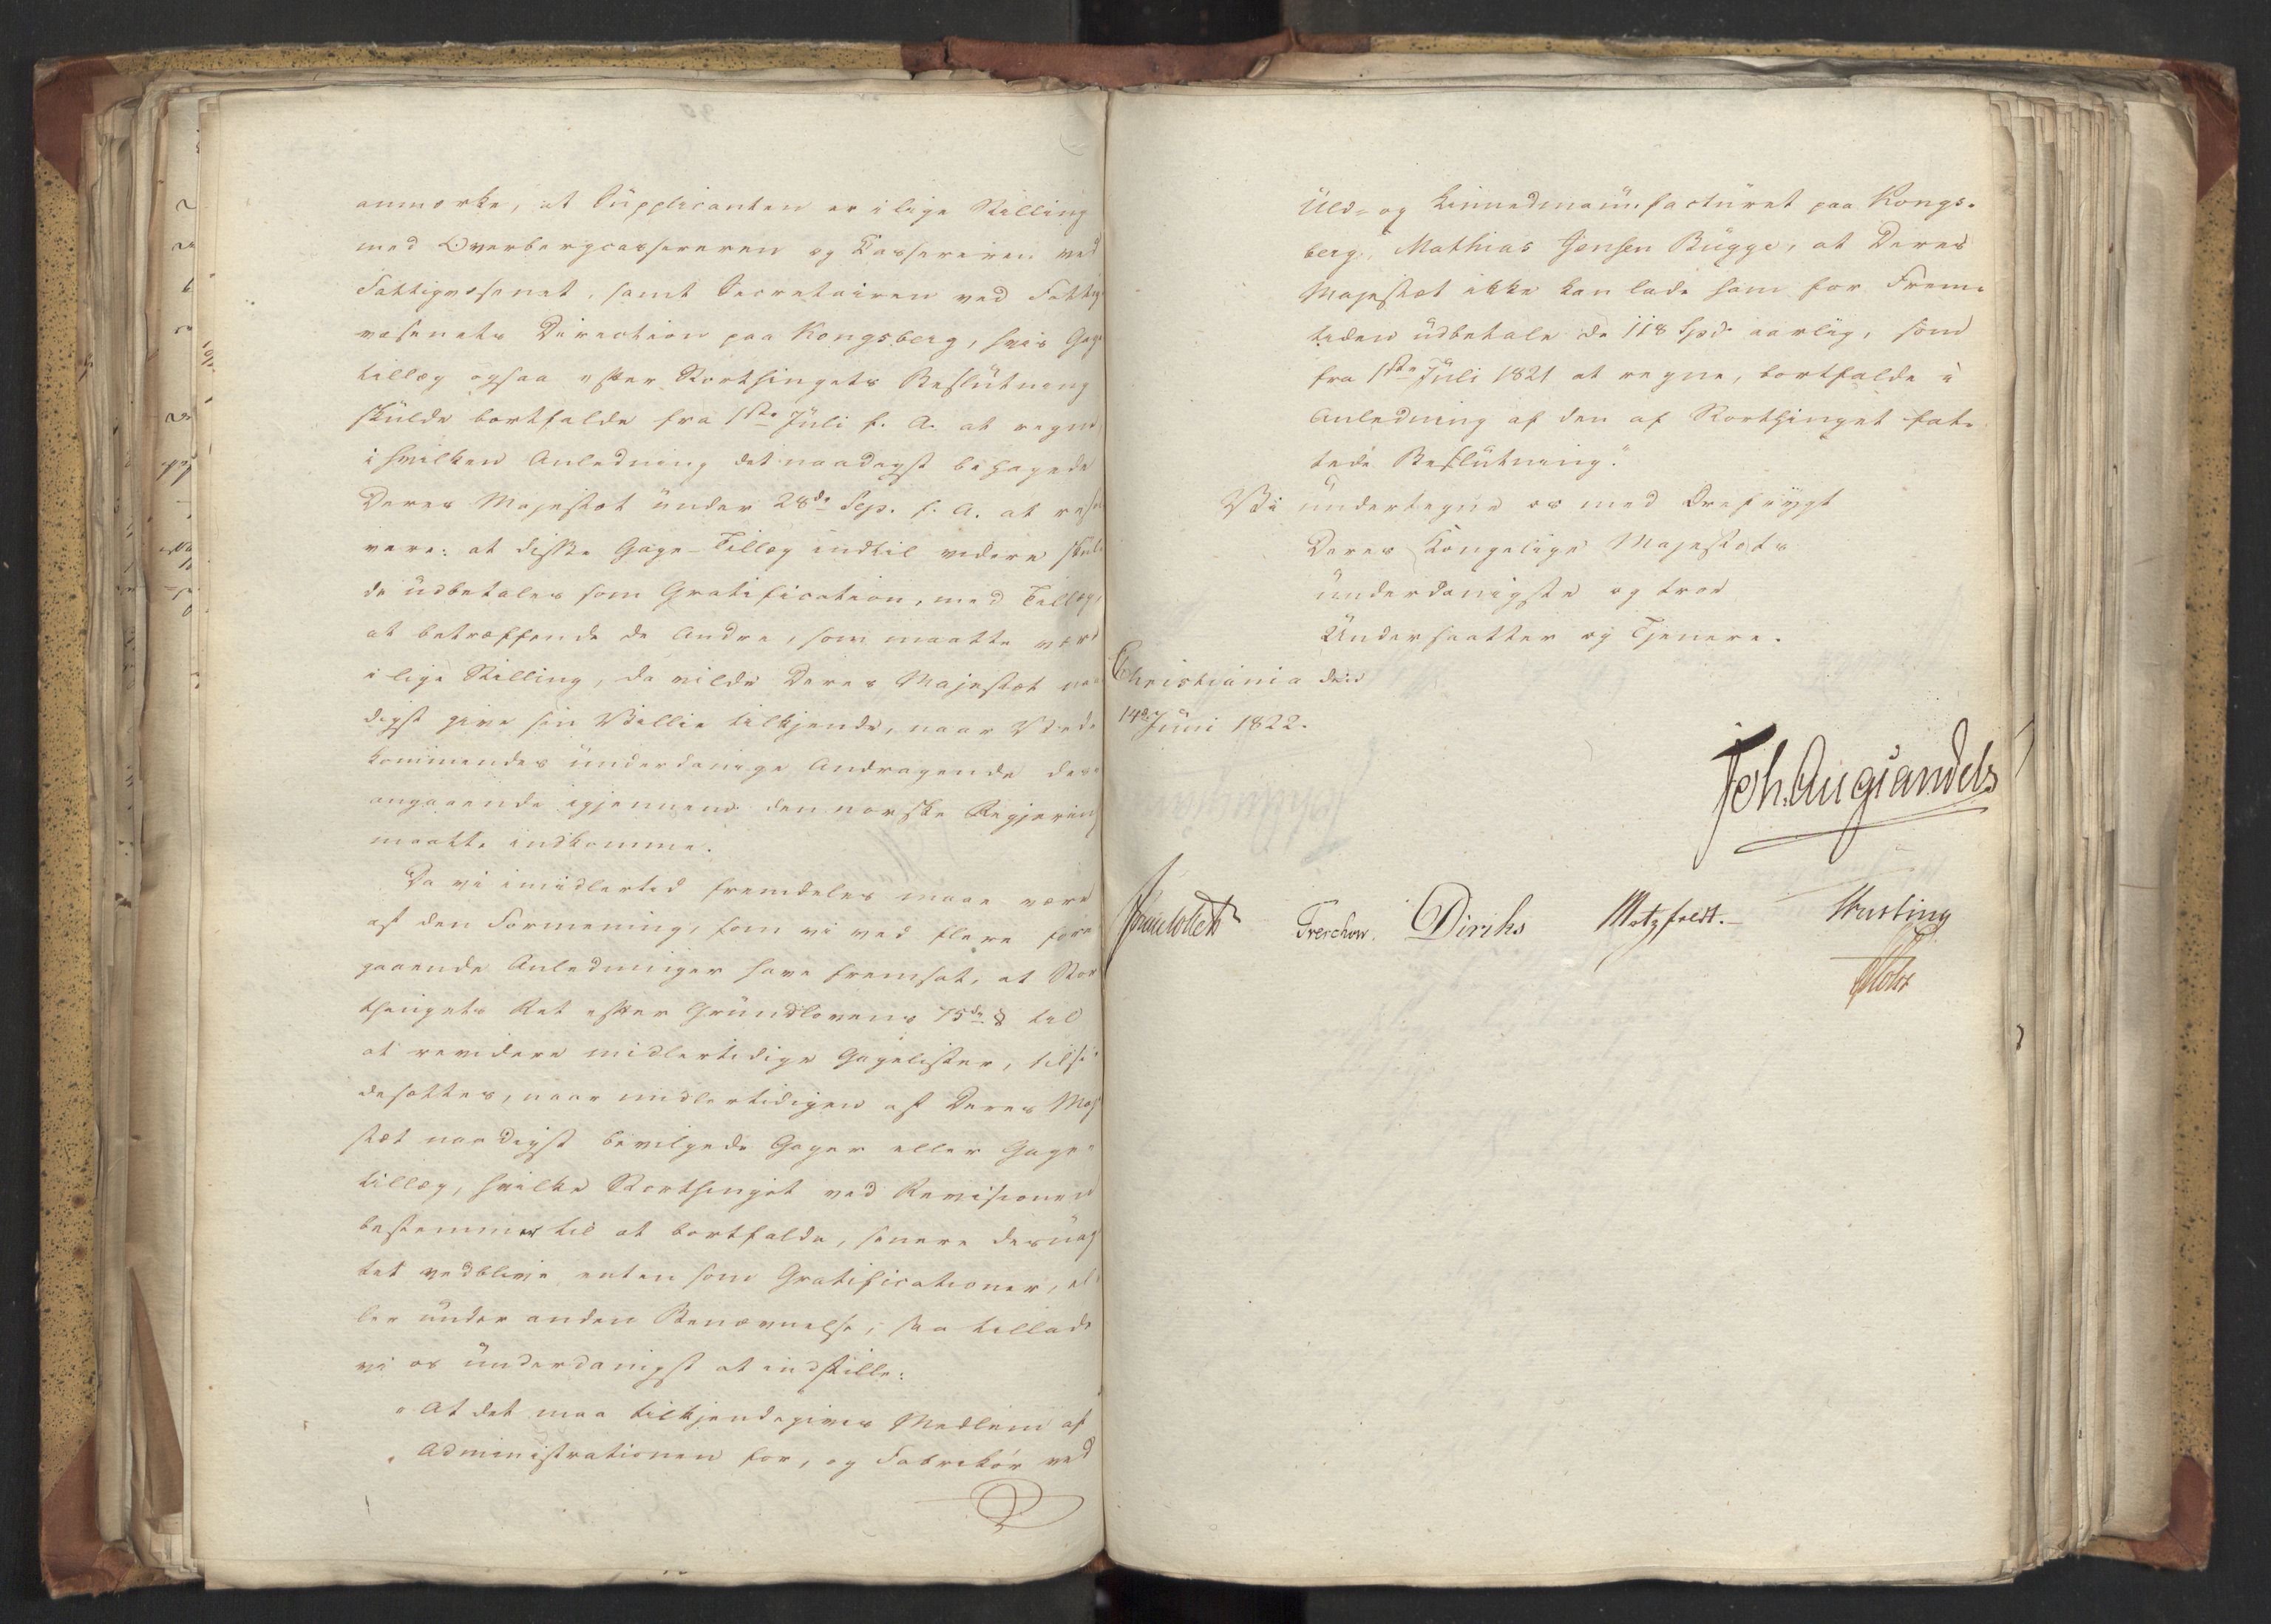 anmærke, at Supplicanten er i lige Stilling
med Overbergcassereren og Kassereren ved
Fattigvæsenet, samt Secretairen ved Fattig
væsenets Direction paa Kongsberg, hvis Gage
tillæg ogsaa efter Storthingets Beslutning
skulde bortfalde fra 1ste Juli f. A. at regne,
i hvilken Anledning det naadigst behagede
Deres Majestæt under 28de Sep. f. A. at resol
vere: at disse Gage-Tillæg indtil videre skul
de udbetales som Gratification, med Tillæg,
at betræffende de Andre, som maatte være
i lige Stilling, da vilde Deres Majestæt naa
digst give sin Villie tilkjende, naar Vedk
kommendes underdanige Andragende des
angaaende igjennem den norske Regjering
maatte indkomme.
Da vi imidlertid fremdeles maae være
af den Formening, som vi ved flere fore
gaaende Anledninger have fremsat, at Stor
thingets Ret efter Grundlovens 75de § til
at revidere midlertidige Gagelister, tilsi
desættes, naar midlertidigen af Deres Maj
stæt naadigst bevilgede Gager eller Gage
tillæg, hvilke Storthinget ved Revisionen
bestemmer til at bortfalde, senere desuag
tet vedblive enten som Gratificationer, el
ler under anden Benævnelse, saa tillade
vi os underdanigst at indstille:
"At det maa tilkjendegives Medlem af
"Administrationen for, og Fabrikør ved
Uld- og Linnedmanufacturet paa Kongs-
berg, Mathias Jensen Bugge, at Deres
Majestæt ikke kan lade ham for Frem-
tiden udbetale de 118 Spd aarlig, som
fra 1ste Juli 1821 at regne, bortfalde i
Anledning af den af Storthinget fat-
tede Beslutning."
Vi undertegne os med Ærefrygt
Deres Kongelige Majestæts
underdanigste og troe
Undersaatter og Tjenere.
Christiania den
14de Juni 1822.
Joh. Aug Sandels
Jonas Collett Treschow. Diriks Motzfeldt. Krefting
Holst